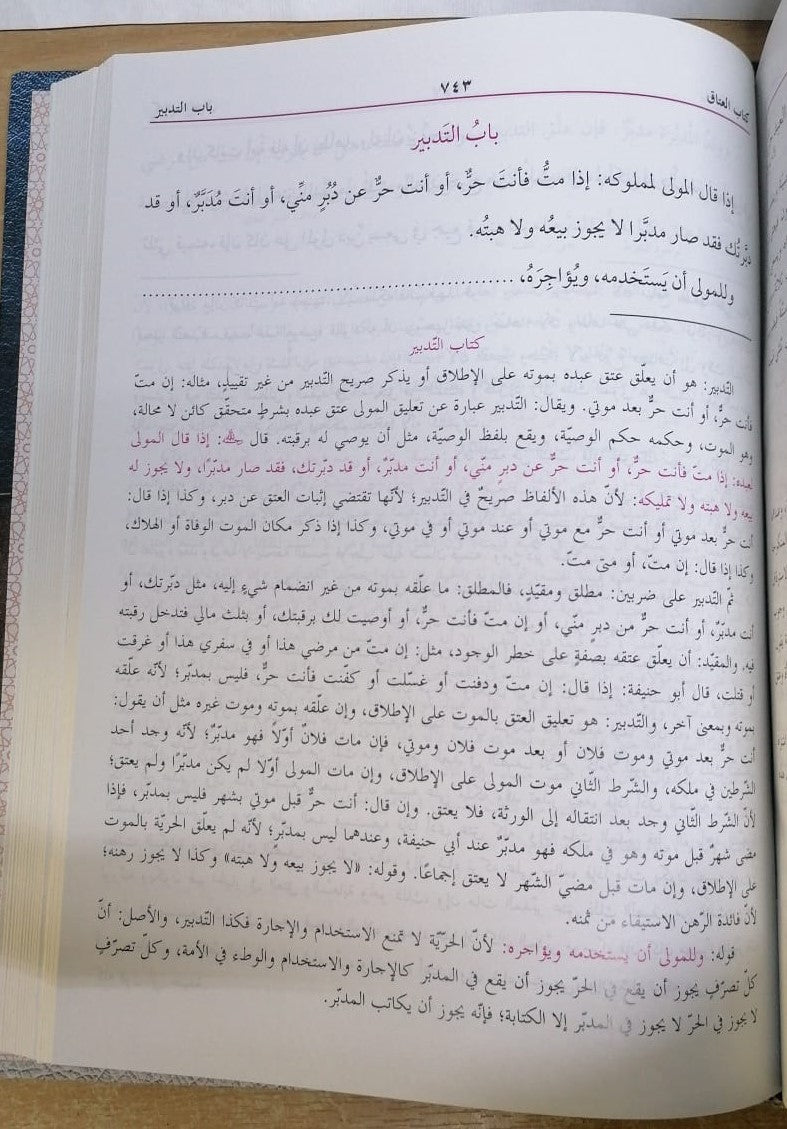 كتاب العتاق
٧٤٣
باب التدبير
بابُ التَدبير
إذا قال المولى لمملوكه: إذا متُّ فأنتَ حرٌّ، أو أنت حرٌّ عن دُبُرٍ منِّي، أو أنتَ مُدَبَّرٌ، أو قد
دبَّرتُك فقد صار مدبَّرا لا يجوز بيعُه ولا هبتُه.
وللمولى أن يَستَخدمه، ويُؤاجِرَهُ، ......................................................
كتاب التّدبير
التّدبير: هو أن يعلّق عتق عبده بموته على الإطلاق أو يذكر صريح التّدبير من غير تقييدٍ، مثاله: إن متّ
فأنت حرٌّ، أو أنت حرٌّ بعد موتي. ويقال: التّدبير عبارة عن تعليق المولى عتق عبده بشرطٍ متحقّق كائن لا محالة،
وهو الموت، وحكمه حكم الوصيّة، ويقع بلفظ الوصيّة، مثل أن يوصي له برقبته. قال ﵀: إذا قال المولى
لعبده: إذا متّ فأنت حرٌّ، أو أنت حرٌّ عن دبرٍ منّي، أو أنت مدبّرٌ، أو قد دبّرتك، فقد صار مدبّرًا، ولا يجوز له
بيعه ولا هبته ولا تمليكه: لأنّ هذه الألفاظ صريحٌ في التّدبير؛ لأنّها تقتضي إثبات العتق عن دبر، وكذا إذا قال:
أنت حرٌّ بعد موتي أو أنت حرٌّ مع موتي أو عند موتي أو في موتي، وكذا إذا ذكر مكان الموت الوفاة أو الهلاك،
وكذا إذا قال: إن متّ، أو متى متّ.
ثمّ التّدبير على ضربين: مطلق ومقيّدٍ، فالمطلق: ما علّقه بموته من غير انضمام شيءٍ إليه، مثل دبّرتك، أو
أنت مدبّرٌ، أو أنت حرٌّ من دبرٍ منّي، أو إن متّ فأنت حرٌّ، أو أوصيت لك برقبتك، أو بثلث مالي فتدخل رقبته
فيه. والمقيّد: أن يعلّق عتقه بصفةٍ على خطر الوجود، مثل: إن متّ من مرضي هذا أو في سفري هذا أو غرقت
أو قتلت، قال أبو حنيفة: إذا قال: إن متّ ودفنت أو غسّلت أو كفّنت فأنت حرٌّ، فليس بمدبّر؛ لأنّه علّقه
بموته وبمعنى آخر، والتّدبير: هو تعليق العتق بالموت على الإطلاق، وإن علّقه بموته وموت غيره مثل أن يقول:
أنت حرٌّ بعد موتي وموت فلان أو بعد موت فلان وموتي، فإن مات فلانٌ أوّلاً فهو مدبّرٌ؛ لأنّه وجد أحد
الشّرطين في ملكه، والشّرط الثّاني موت المولى على الإطلاق، وإن مات المولى أوّلا لم يكن مدبّرًا ولم يعتق؛
لأنّ الشّرط الثّاني وجد بعد انتقاله إلى الورثة، فلا يعتق. وإن قال: أنت حرٌّ قبل موتي بشهر فليس بمدبّر، فإذا
مضى شهرٌ قبل موته وهو في ملكه فهو مدبّرٌ عند أبي حنيفة، وعندهما ليس بمدبّرٍ؛ لأنّه لم يعلّق الحريّة بالموت
على الإطلاق، وإن مات قبل مضيّ الشّهر لا يعتق إجماعًا. وقوله: «لا يجوز بيعه ولا هبته» وكذا لا يجوز رهنه؛
لأنّ فائدة الرّهن الاستيفاء من ثمنه.
قوله: وللمولى أن يستخدمه ويؤاجره: لأنّ الحريّة لا تمنع الاستخدام والإجارة فكذا التّدبير، والأصل: أنّ
كلّ تصرّفٍ يجوز أن يقع في الحرّ يجوز أن يقع في المدبّر كالإجارة والاستخدام والوطء في الأمة، وكلّ تصرّفٍ
لا يجوز في الحرّ لا يجوز في المدبّر إلا الكتابة؛ فإنّه يجوز أن يكاتب المدبّر.